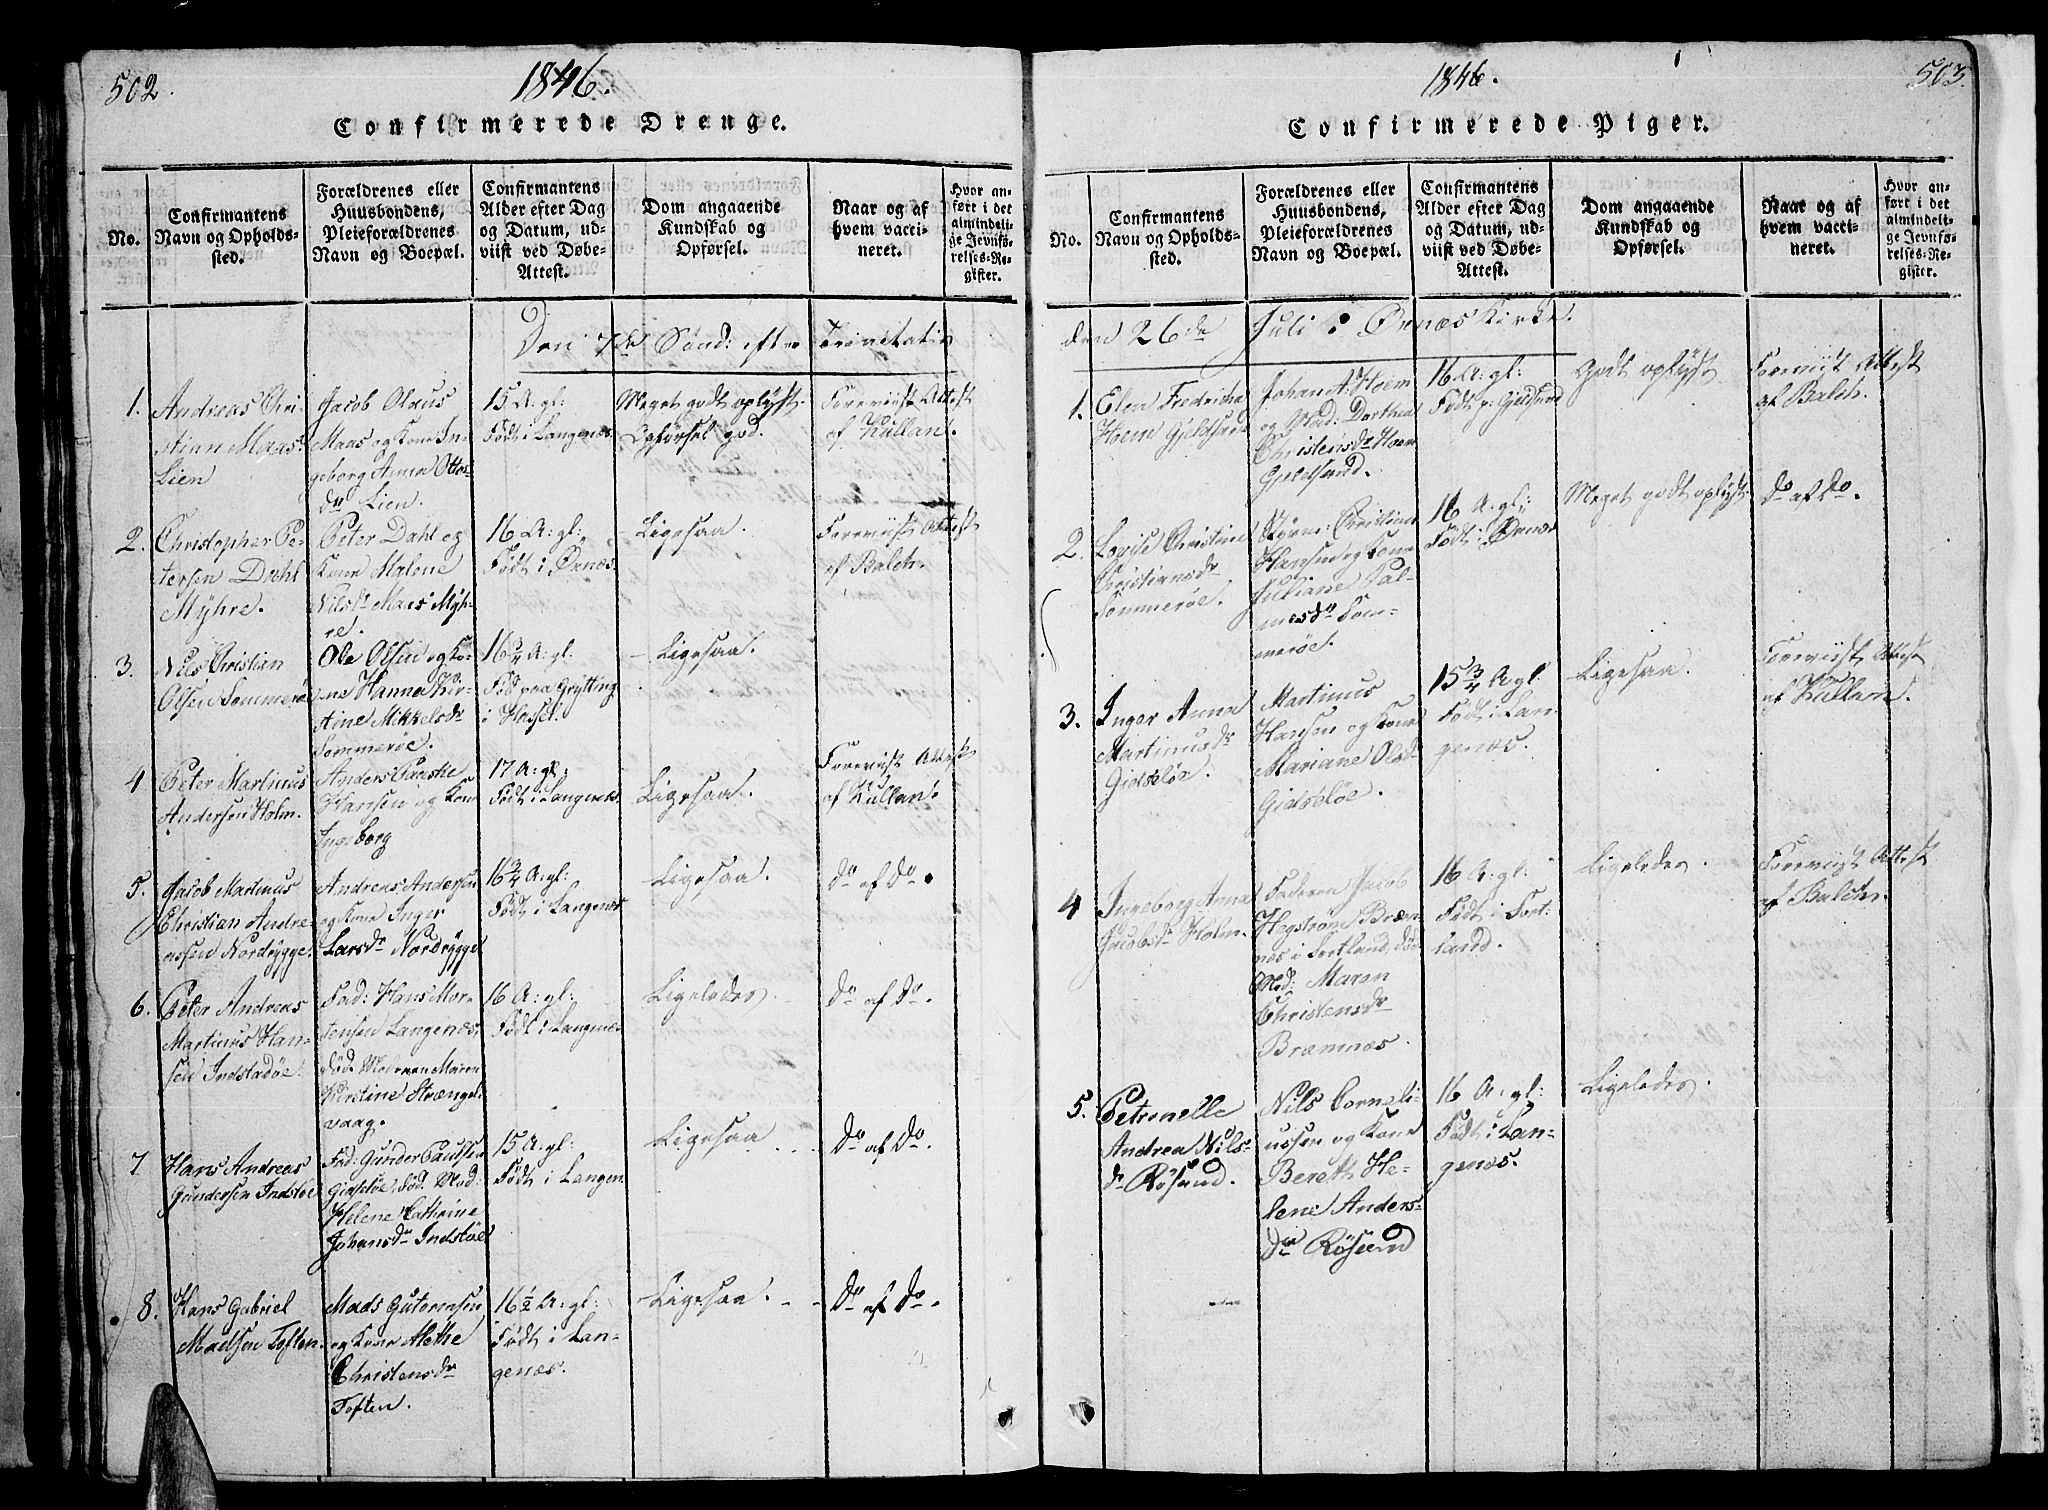 502.
1846.
Confirmerede Drenge.
No.
Confirmantens
Navn og Opholds-
sted.
Forældrenes eller
Huusbondens,
Pleieforældrenes
Navn og Boepæl.
Confirmantens
Alder efter Dag
og Datum, ud-
viist ved Døbe-
Attest.
Dom angaaende
Kundskab og
Opførsel.
Naar og af
hvem vacci-
neret.
Hvor an-
ført i det
almindeli-
ge Jevnfø-
relses-Re-
gister.
Den 7de Sønd: efter Trinitatis
1.
Andreas Chri-
stian Maas
Lien
Jacob Olaus
Maas og Kone In-
geborg Anna Ottos-
dr Lien.
15 A: gl:
Født i Langenæs.
Meget godt oplyst.
Opførsel god.
Foreviist Attest
af Kullan.
2.
Christopher Pe-
tersen Dahl
Myhre.
Peter Dahl og
Kone Malene
Nilsdr Maas Myh-
re.
16 A: gl:
Født i Ørnæs.
Ligesaa.
Foreviist Attest
af Balch.
3.
Nils Christian
Olsen Sommerøe
Ole Olsen og Ko-
ne Hanna Kir-
stine Mikkelsdr
Sommerøe.
16 3/4 A: gl:
Fød paa Grytting
i Hassel.
Ligesaa.
4
Peter Martinus
Andersen Holm.
Anders Paaske
Hansen og Kone
Ingeborg
17 A: gl:
Født i Langenæs.
Ligesaa.
Foreviist Attest
af Kullan.
5.
Jacob Martinus
Christian Andre-
assen Nordrygge.
Andreas Andersen
og Kone Inger
Larsdr Nordrygge
16 3/4 A: gl:
Født i Langenæs
Ligesaa.
Do af Do.
6.
Peter Andreas
Martinus Han-
sen Indstadøe.
Fad: Hans Mor-
tensen Langenæs,
død. Moderen Maren
Kirstine Strængel-
vaag.
16 A: gl:
Født i Langenæs
Ligeledes.
Do af Do.
7
Hans Andreas
Gundersen Indstøe
Fad: Gunder Paulsen
Gidsløe, død. Mod:
Helene Cathrine
Johansdr Indstøe
15 A: gl:
Født i Langen
Ligesaa
Do af Do.
8.
Hans Gabriel
Madsen Toften.
Mads Gutormsen
og Kone Methe
Christensdr
Toften.
16 1/2 A: gl:
Født i Lan-
genæs.
Ligesaa.
Do af Do.
1846.
503.
Confirmerede Piger.
No.
Confirmantens
Navn og Opholds-
sted.
Forældrenes eller
Huusbondens,
Pleieforældrenes
Navn og Boepæl.
Confirmantens
Alder efter Dag
og Datum, ud-
viist ved Døbe-
Attest.
Dom angaaende
Kundskab og
Opførsel.
Naar og af
hvem vacci-
neret.
Hvor an-
ført i det
almindeli-
ge Jevnfø-
relses-Re-
gister.
den 26de Juli i Ørnæs Kirke.
1.
Elen Fredricha
Hoem Gjeldsund
Johan A. Hoem
og Mad: Dorthea
Christensdr Hoem
Gjeldsund.
16 A: gl:
Født p: Gjeldsund
Godt oplyst
Foreviist Attest
af Balch.
2.
Lovise Christine
Christiansdr
Sommerøe.
Christian
Hansen og Kone
Juliane Pal-
mesdr Som-
merøe.
16 A: gl:
Født i Ørnæs
Meget godt oplyst.
Do af Do.
3.
Inger Anna
Martinusdr
Gidsløe.
Martinus
Hansen og Kone
Mariane Olsdr
Gidsløe.
15 3/4 A gl:
Født i Lan-
genæs.
Ligesaa.
Foreviist Attest
af Kullan.
4
Ingeborg Anna
Jacobsdr Holm.
Faderen Jacob
Hegstrøm Bræm-
næs i Sortland, død
Mod: Maren
Christensdr
Bræmnæs.
16 A: gl:
Født i Sort-
landd.
Ligeledes.
Foreviist Attest
af Balch.
5.
Petrenelle
Andrea Nils-
dr Røsand.
Nils Corneli-
ussen og Kone
Bereth He-
lene Anders-
dr Røsand
16 A: gl:
Født i Lan-
genæs.
Ligeledes.